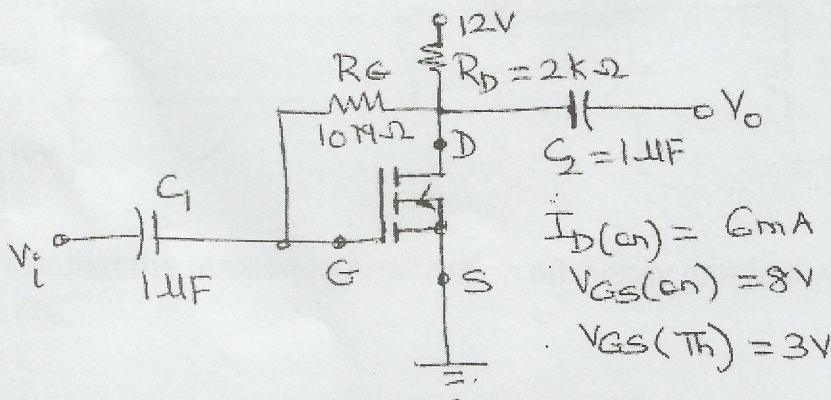 12V
RG
RD = 2KΩ
10MΩ
D
Vo
C2 = 1µF
C1
Vi
1µF
G
S
ID(on) = 6mA
VGS(on) = 8V
VGS(Th) = 3V